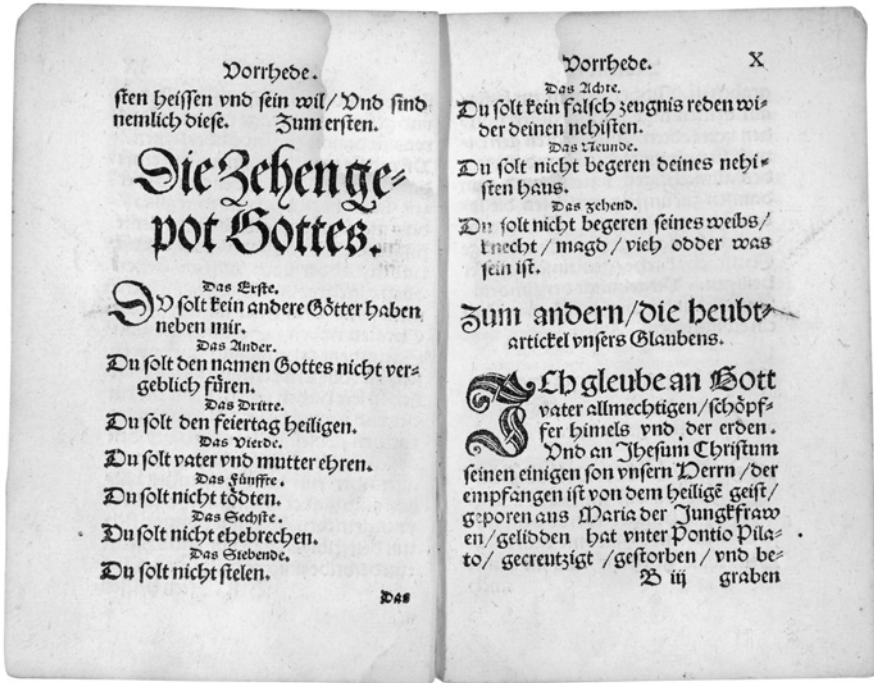 Vorrhede.
sten heissen vnd sein wil/ Vnd sind
nemlich diese. Zum ersten.
Die Zehen ge-
pot Gottes.
Das Erste.
DV solt kein andere Götter haben
neben mir.
Das Ander.
Du solt den namen Gottes nicht ver-
geblich füren.
Das Dritte.
Du solt den feiertag heiligen.
Das Vierde.
Du solt vater vnd mutter ehren.
Das Fünffte.
Du solt nicht tödten.
Das Sechste.
Du solt nicht ehebrechen.
Das Siebende.
Du solt nicht stelen.
Das
Vorrhede. X
Das Achte.
Du solt kein falsch zeugnis reden wi-
der deinen nehisten.
Das Neunde.
Du solt nicht begeren deines nehi-
sten haus.
Das zehend.
Du solt nicht begeren seines weibs/
knecht/ magd/ vieh odder was
sein ist.
Zum andern/die heubt-
artickel vnsers Glaubens.
ICh gleube an Gott
vater allmechtigen/schöpf-
fer himels vnd der erden.
Vnd an Jhesum Christum
seinen einigen son vnsern Herrn/der
empfangen ist von dem heiligẽ geist/
geporen aus Maria der Jungkfraw
en/gelidden hat vnter Pontio Pila-
to/ gecreutzigt/gestorben/ vnd be-
B iij graben